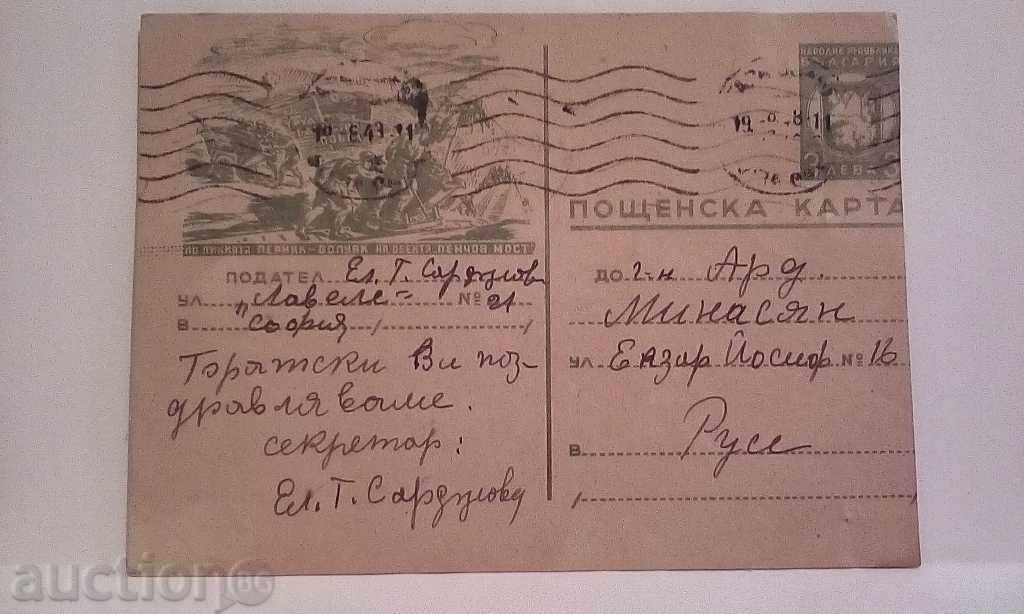 НАРОДНА РЕПУБЛИКА
БЪЛГАРИЯ
3 ЛЕВА 3
19. 8. 49. 11
ПОЩЕНСКА КАРТА
ПО ЛИНИЯТА ПЕРНИК – ВОЛУЯК НА ОБЕКТА „ПЕНЧОВ МОСТ"
ПОДАТЕЛ Ел. Т. Сарджова
УЛ. „Лавеле – № 21
В София / /
Братски Ви поз-
дравляваме.
секретар:
Ел. Т. Сарджова
ДО г-н Ард.
Минасян
УЛ Елазар Йосиф № 16
В Русе
/ /
auction BG